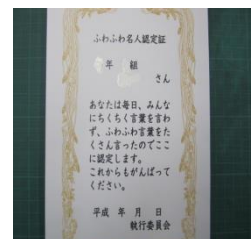 ふわふわ名人認定証
年 組
さん
あなたは毎日、みんな
にちくちく言葉を言わ
ず、ふわふわ言葉をた
くさん言ったのでここ
に認定します。
これからもがんばって
ください。
平成 年 月 日
執行委員会